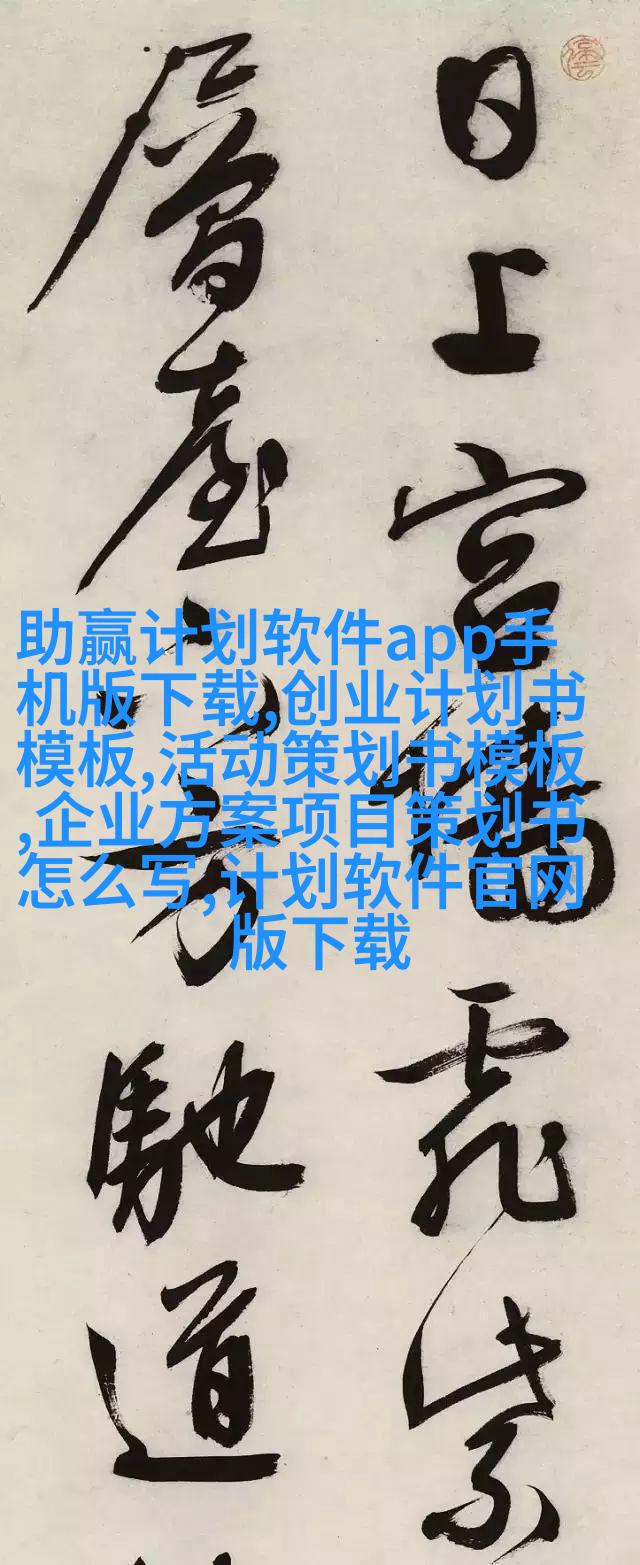 日上宮牆霏紫
層臺下方馳道
助赢计划软件app手
机版下载,创业计划书
模板,活动策划书模板
,企业方案项目策划书
怎么写,计划软件官网
版下载